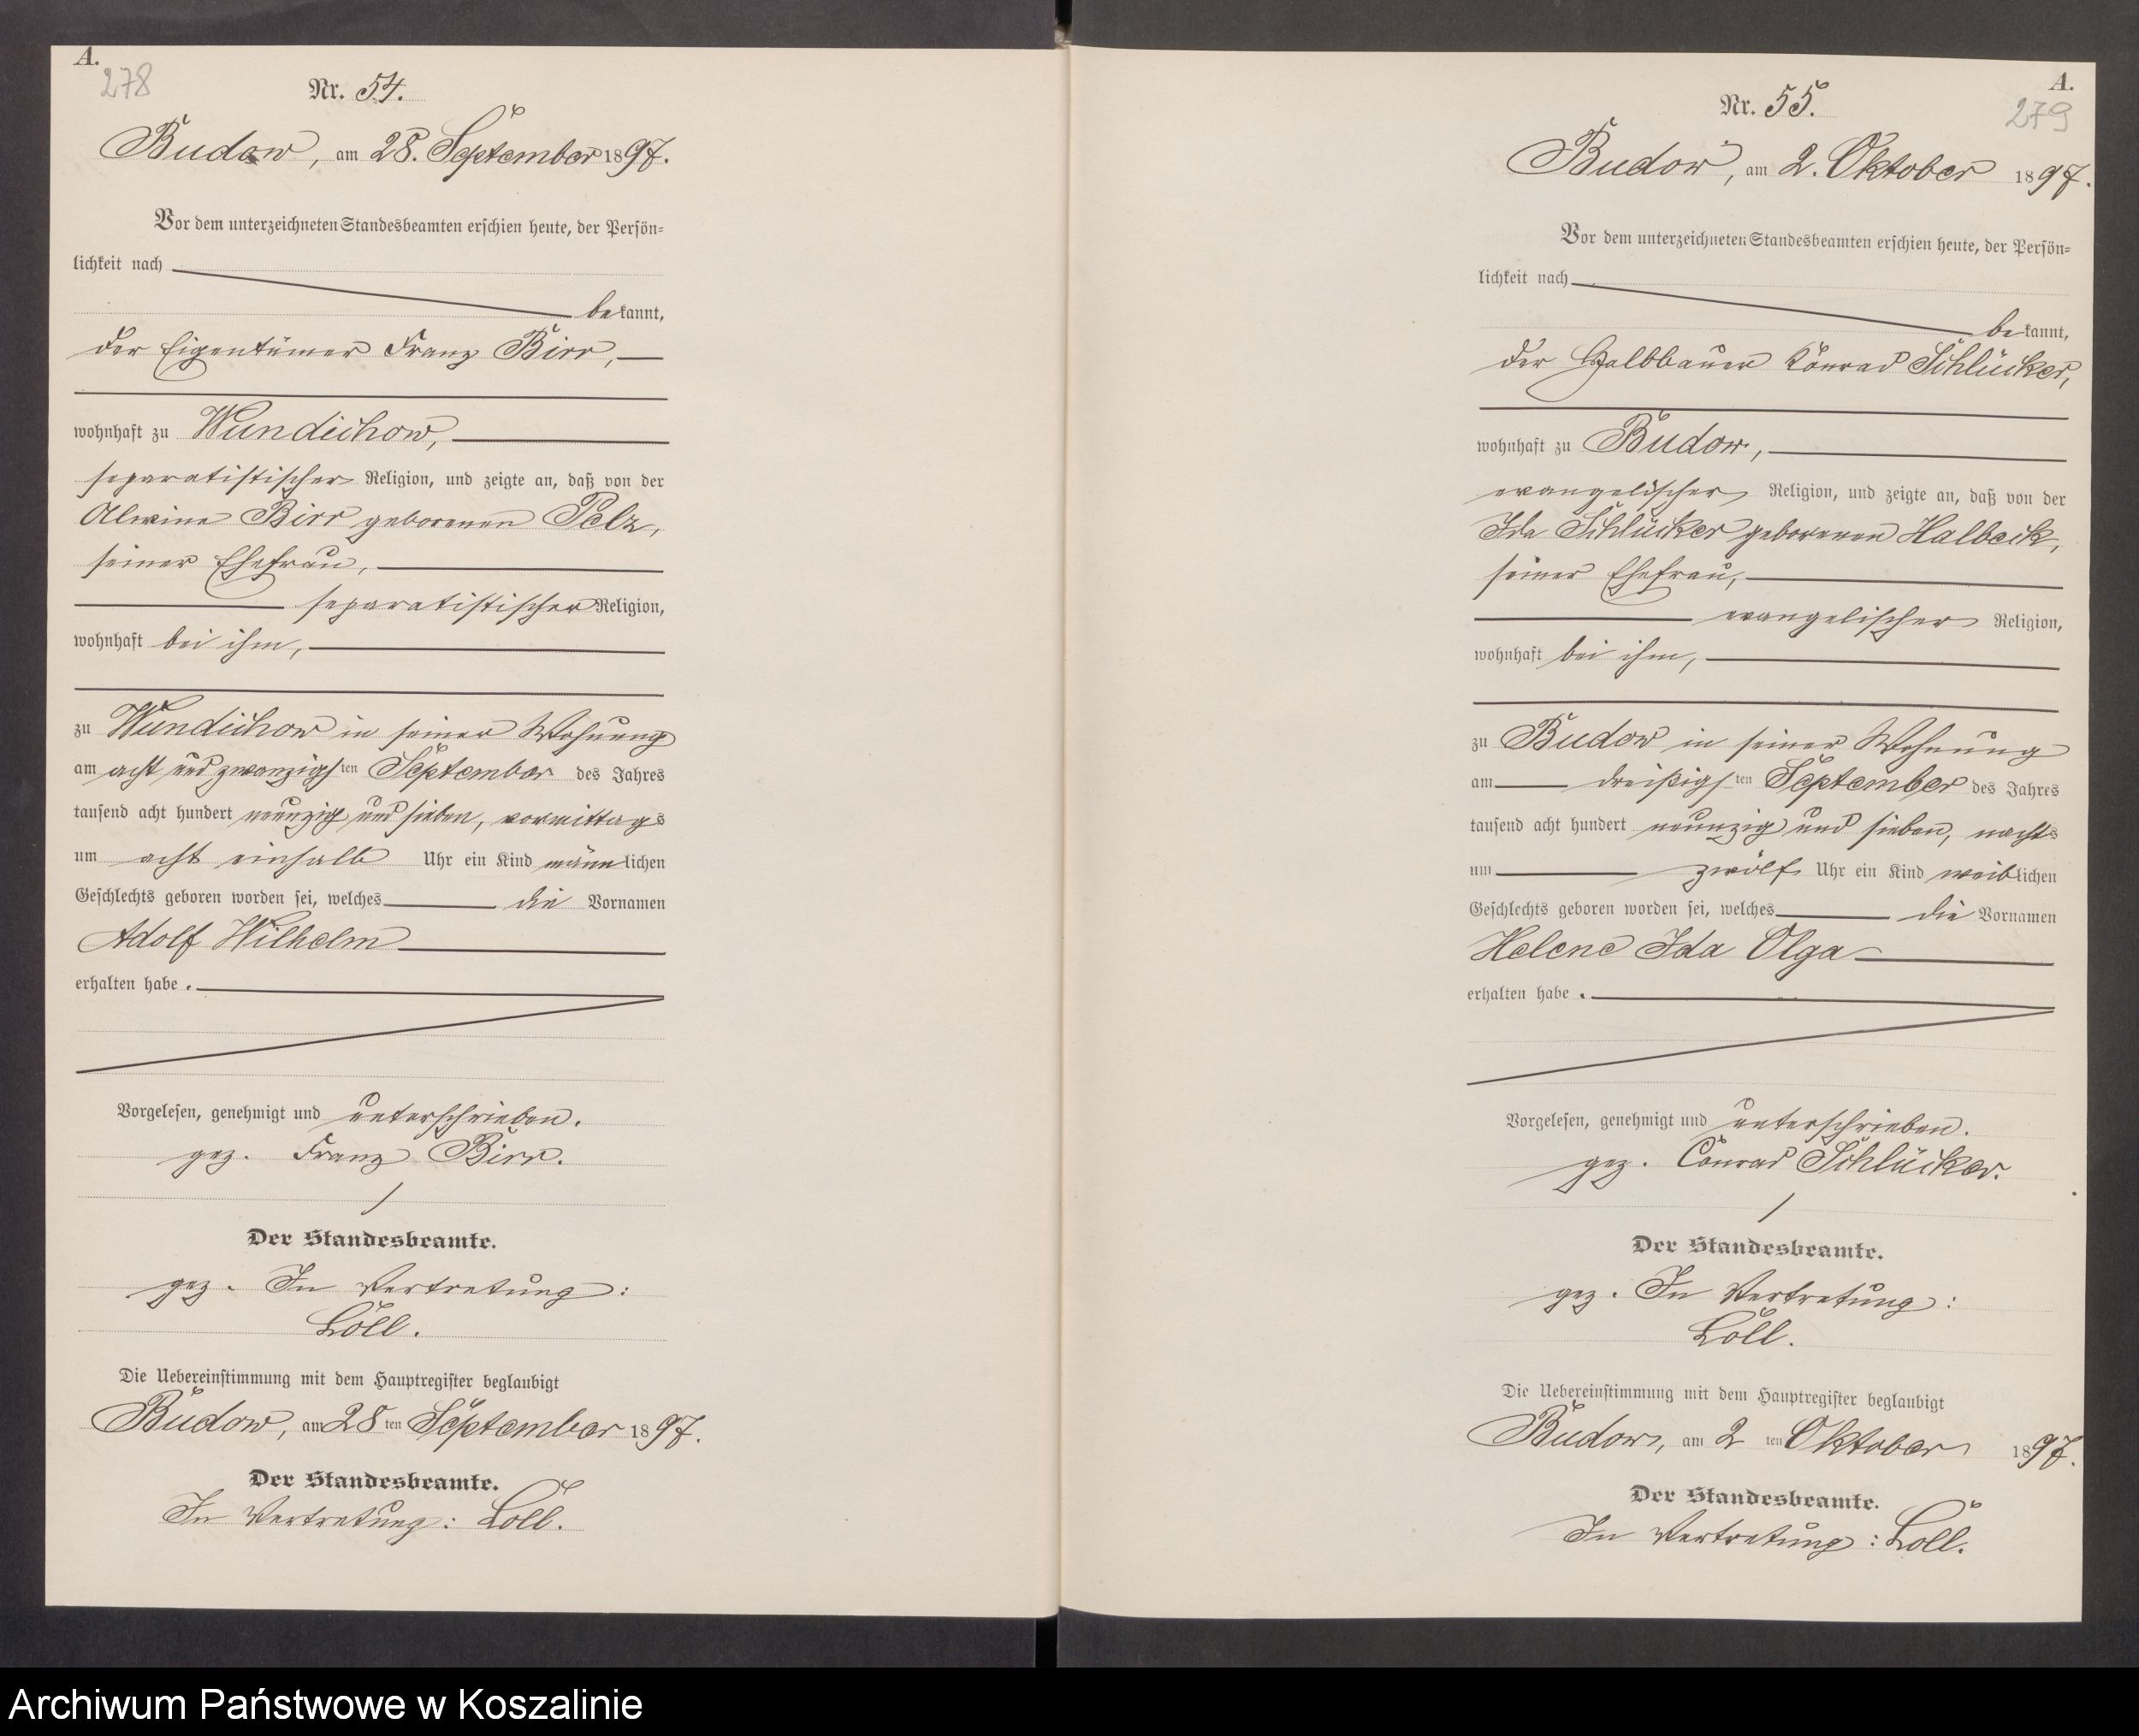 A.
278
Nr. 54.
Budow, am 28. September 1897.
Vor dem unterzeichneten Standesbeamten erschien heute, der Persön-
lichkeit nach
bekannt,
der Eigentümer Franz Birr,
wohnhaft zu Wundichow,
separatistischer Religion, und zeigte an, daß von der
Alwine Birr geborenen Pelz,
seiner Ehefrau,
separatistischer Religion,
wohnhaft bei ihm,
zu Wundichow in seiner Wohnung
am acht und zwanzigsten September des Jahres
tausend acht hundert neunzig und sieben, vormittags
um acht einhalb Uhr ein Kind männlichen
Geschlechts geboren worden sei, welches die Vornamen
Adolf Wilhelm
erhalten habe.
Vorgelesen, genehmigt und unterschrieben.
gez. Franz Birr.
Der Standesbeamte.
gez. In Vertretung:
Löll.
Die Uebereinstimmung mit dem Hauptregister beglaubigt
Budow, am 28ten September 1897.
Der Standesbeamte.
In Vertretung: Löll.
A.
279
Nr. 55.
Budow, am 2. Oktober 1897.
Vor dem unterzeichneten Standesbeamten erschien heute, der Persön-
lichkeit nach
bekannt,
der Halbbauer Conrad Schlücker,
wohnhaft zu Budow,
evangelischer Religion, und zeigte an, daß von der
Ida Schlücker geborenen Halbeck,
seiner Ehefrau,
evangelischer Religion,
wohnhaft bei ihm,
zu Budow in seiner Wohnung
am dreißigsten September des Jahres
tausend acht hundert neunzig und sieben, nachts
um zwölf Uhr ein Kind weiblichen
Geschlechts geboren worden sei, welches die Vornamen
Helene Ida Olga
erhalten habe.
Vorgelesen, genehmigt und unterschrieben.
gez. Conrad Schlücker.
Der Standesbeamte.
gez. In Vertretung:
Löll.
Die Uebereinstimmung mit dem Hauptregister beglaubigt
Budow, am 2ten Oktober 1897.
Der Standesbeamte.
In Vertretung: Löll.
Archiwum Państwowe w Koszalinie